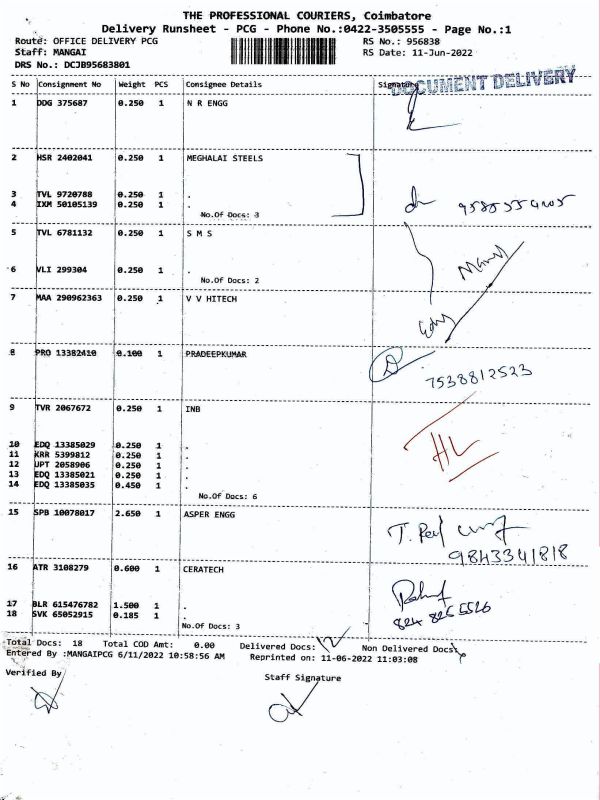 THE PROFESSIONAL COURIERS, Coimbatore
Delivery Runsheet - PCG - Phone No.:0422-3505555 - Page No.:1
Route: OFFICE DELIVERY PCG RS No.: 956838
Staff: MANGAI RS Date: 11-Jun-2022
DRS No.: DCJB95683801
S No Consignment No Weight PCS Consignee Details Signature
DOCUMENT DELIVERY
1 DDG 375687 0.250 1 N R ENGG
2 HSR 2402041 0.250 1 MEGHALAI STEELS
3 TVL 9720788 0.250 1 .
4 IXM 50105139 0.250 1 .
No.Of Docs: 3
5 TVL 6781132 0.250 1 S M S
6 VLI 299304 0.250 1 .
No.Of Docs: 2
7 MAA 290962363 0.250 1 V V HITECH
8 PRO 13382410 0.100 1 PRADEEPKUMAR
7538812523
9 TVR 2067672 0.250 1 INB
10 EDQ 13385029 0.250 1 .
11 KRR 5399812 0.250 1 .
12 UPT 2058906 0.250 1 .
13 EDQ 13385021 0.250 1 .
14 EDQ 13385035 0.450 1 .
No.Of Docs: 6
15 SPB 10078017 2.650 1 ASPER ENGG
9843341818
16 ATR 3108279 0.600 1 CERATECH
17 BLR 615476782 1.500 1 .
18 SVK 65052915 0.185 1 .
No.Of Docs: 3
Total Docs: 18 Total COD Amt: 0.00 Delivered Docs: Non Delivered Docs:
Entered By :MANGAIPCG 6/11/2022 10:58:56 AM Reprinted on: 11-06-2022 11:03:08
Verified By Staff Signature